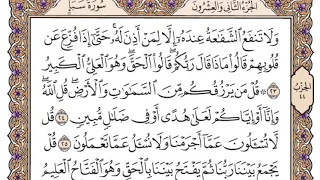 الجُزءُ الثَّانِي وَالعِشْرُونَ
سُورَةُ سَبَإٍ
وَلَا تَنفَعُ ٱلشَّفَٰعَةُ عِندَهُۥٓ إِلَّا لِمَنْ أَذِنَ لَهُۥۚ حَتَّىٰٓ إِذَا فُزِّعَ عَن
قُلُوبِهِمْ قَالُوا۟ مَاذَا قَالَ رَبُّكُمْۖ قَالُوا۟ ٱلْحَقَّۖ وَهُوَ ٱلْعَلِىُّ ٱلْكَبِيرُ
٢٣ ۞ قُلْ مَن يَرْزُقُكُم مِّنَ ٱلسَّمَٰوَٰتِ وَٱلْأَرْضِۖ قُلِ ٱللَّهُۖ
وَإِنَّآ أَوْ إِيَّاكُمْ لَعَلَىٰ هُدًى أَوْ فِى ضَلَٰلٍ مُّبِينٍ ٢٤ قُل
لَّا تُسْـَٔلُونَ عَمَّآ أَجْرَمْنَا وَلَا نُسْـَٔلُ عَمَّا تَعْمَلُونَ ٢٥ قُلْ
يَجْمَعُ بَيْنَنَا رَبُّنَا ثُمَّ يَفْتَحُ بَيْنَنَا بِٱلْحَقِّ وَهُوَ ٱلْفَتَّاحُ ٱلْعَلِيمُ
الحِزْبُ
٤٤